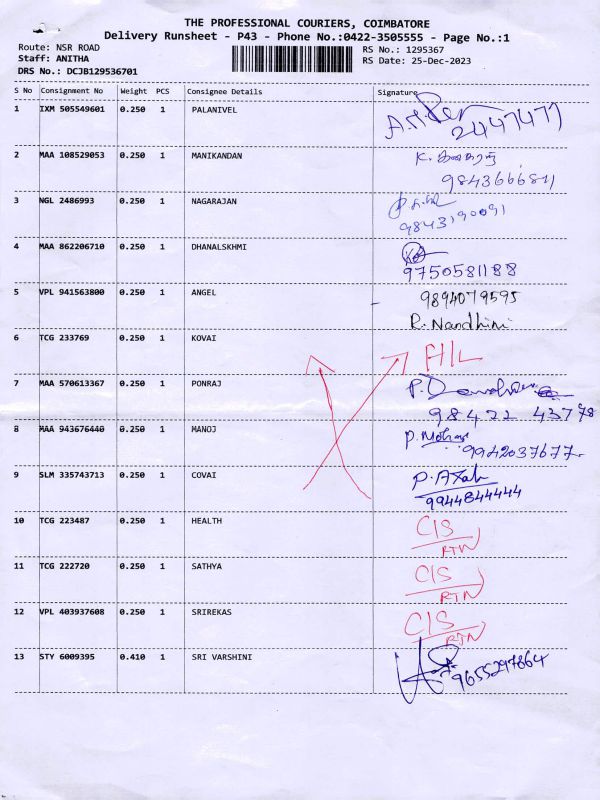 THE PROFESSIONAL COURIERS, COIMBATORE
Delivery Runsheet - P43 - Phone No.:0422-3505555 - Page No.:1
Route: NSR ROAD RS No.: 1295367
Staff: ANITHA RS Date: 25-Dec-2023
DRS No.: DCJB129536701
S No Consignment No Weight PCS Consignee Details Signature
1 IXM 505549601 0.250 1 PALANIVEL
2447477
2 MAA 108529053 0.250 1 MANIKANDAN K.
9843666811
3 NGL 2486993 0.250 1 NAGARAJAN
9843190091
4 MAA 862206710 0.250 1 DHANALSKHMI
9750581188
5 VPL 941563800 0.250 1 ANGEL 9894079595
R. Nandhini
6 TCG 233769 0.250 1 KOVAI
7 MAA 570613367 0.250 1 PONRAJ P.
98422 43778
8 MAA 943676440 0.250 1 MANOJ P. Mohan
9942037677
9 SLM 335743713 0.250 1 COVAI P.
9944844444
10 TCG 223487 0.250 1 HEALTH CIS
RTN
11 TCG 222720 0.250 1 SATHYA CIS
RTN
12 VPL 403937608 0.250 1 SRIREKAS CIS
RTN
13 STY 6009395 0.410 1 SRI VARSHINI 9655297864